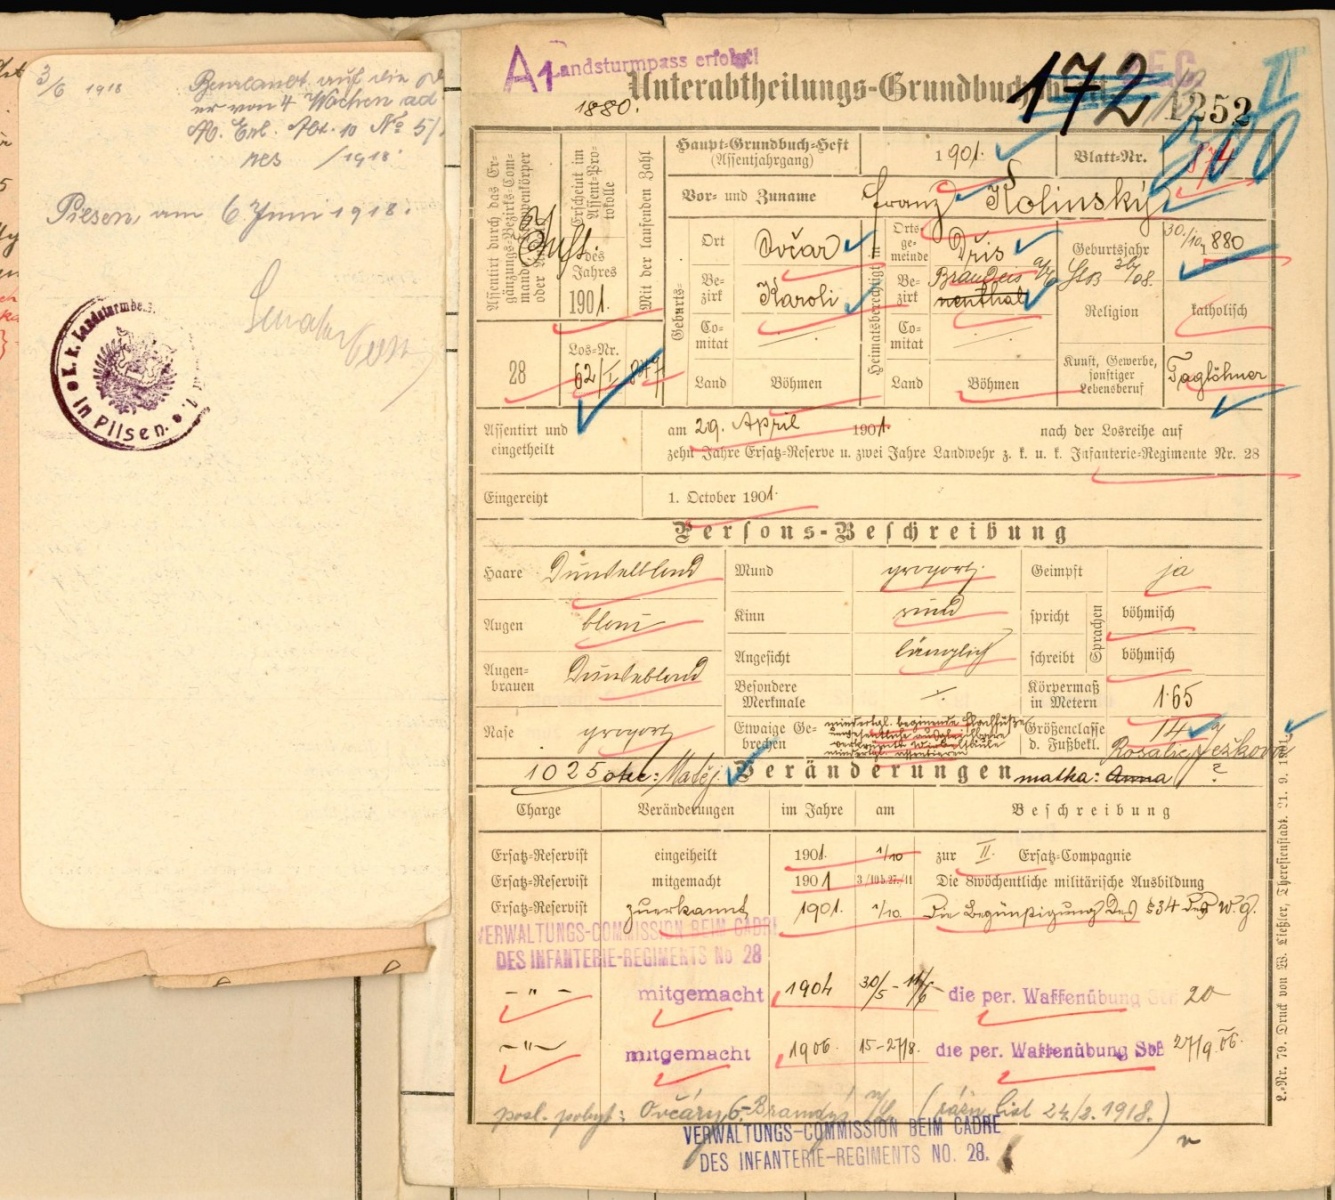 3/6 1918
Beurlaubt auf die
er von 4 Wochen
Erl. Abt. 10 No 5/
/1918.
Pilsen, am 6 Juni 1918.
k.k. Landsturmbe
in Pilsen.
A1 Landsturmpass erfolgt!
1880.
Unterabtheilungs-Grundbuch
172
1252
II
200
Assentirt durch das Ergänzungs-Bezirks-Commando
oder
Erscheint im Assent-Protokolle
des Jahres
1901.
Mit der laufenden Zahl
28
Los-Nr.
62/I
847
Haupt-Grundbuch-Heft
(Assentjahrgang)
1901.
Blatt-Nr.
874
Vor- und Zuname
Franz Kolinský
Geburts-
Ort
Ovčar
Bezirk
Karoli
Comitat
Land
Böhmen
Heimatsberechtigt in
Ortsgemeinde
Dřis
Bezirk
Brandeis a/E
nenthal
Comitat
Land
Böhmen
Geburtsjahr
30/10 1880
Religion
katholisch
Kunst, Gewerbe, sonstiger Lebensberuf
Taglöhner
Assentirt und eingetheilt
am 29. April 1901. nach der Losreihe auf
zehn Jahre Ersatz-Reserve u. zwei Jahre Landwehr z. k. u. k. Infanterie-Regimente Nr. 28
Eingereiht
1. October 1901.
Persons-Beschreibung
Haare Dunkelblond
Mund proport.
Geimpft ja
Augen blau
Kinn rund
spricht böhmisch
Sprachen
Angesicht länglich
schreibt böhmisch
Augenbrauen Dunkelblond
Besondere Merkmale
Körpermaß in Metern 1·65
Nase proport.
Etwaige Gebrechen
Größenclasse d. Fußbekl. 14
1025 otec: Matěj
Veränderungen
matka: Anna ?
Rosalie Ježková
Charge
Veränderungen
im Jahre
am
Beschreibung
Ersatz-Reservist eingetheilt 1901. 1/10 zur II. Ersatz-Compagnie
Ersatz-Reservist mitgemacht 1901 3/10 b 27./11 Die 8wöchentliche militärische Ausbildung
Ersatz-Reservist zuerkannt 1901. 1/10. Die Begünstigung des §34 des W.G.
VERWALTUNGS-COMMISSION BEIM CADRE
DES INFANTERIE-REGIMENTS No 28
– " – mitgemacht 1904 30/5 – 11/6 die per. Waffenübung 20
– " – mitgemacht 1906. 15–27/8. die per. Waffenübung Stß 27/9 06.
posl. pobyt: Ovčáry 6 – Brandýs n/L 24/2. 1918.)
VERWALTUNGS-COMMISSION BEIM CADRE
DES INFANTERIE-REGIMENTS NO. 28.
L.-Nr. 79. Druck von W. Liebler, Theresienstadt. 21. 9.